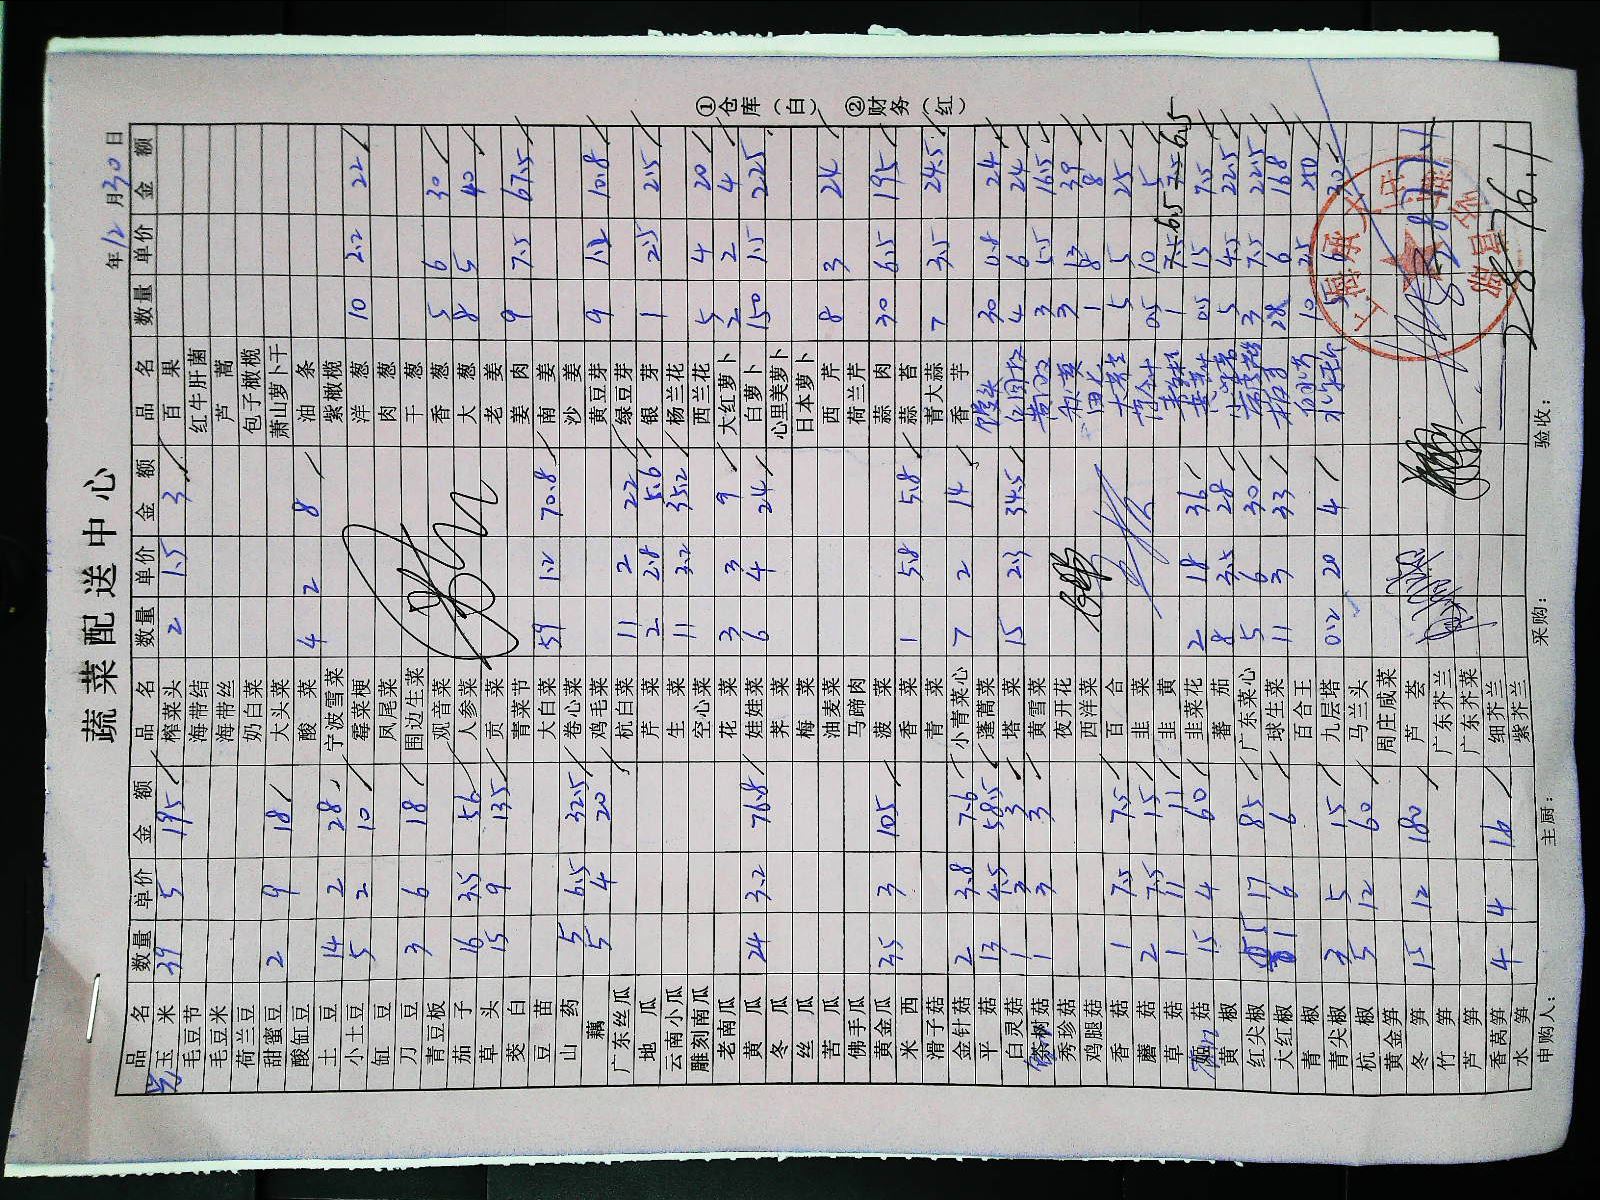 蔬菜配送中心
年12月30日
品名 数量 单价 金额 品名 数量 单价 金额 品名 数量 单价 金额
玉米 39 5 195 榨菜头 2 1.5 3 百果
毛豆节 海带结 红牛肝菌
毛豆米 海带丝 芦蒿
荷兰豆 奶白菜 包子橄榄
甜蜜豆 2 9 18 大头菜 萧山萝卜干
酸缸豆 酸菜 4 2 8 油条
土豆 14 2 28 宁波雪菜 紫橄榄
小土豆 5 2 10 霉菜梗 洋葱 10 2.2 22
缸豆 凤尾菜 肉葱
刀豆 3 6 18 围边生菜 干葱
青豆板 观音菜 香葱 5 6 30
茄子 16 3.5 56 人参菜 大葱 8 5 40
草头 15 9 135 贡菜 老姜
茭白 青菜节 姜肉 9 7.5 67.5
豆苗 大白菜 59 1.2 70.8 南姜
山药 5 6.5 32.5 卷心菜 沙姜
藕 5 4 20 鸡毛菜 黄豆芽 9 1.2 10.8
广东丝瓜 杭白菜 11 2 22 绿豆芽
地瓜 芹菜 2 2.8 5.6 银芽 1 2.5 2.5
云南小瓜 生菜 11 3.2 35.2 杨兰花
雕刻南瓜 空心菜 西兰花 5 4 20
老南瓜 花菜 3 3 9 大红萝卜 2 2 4
黄瓜 24 3.2 76.8 娃娃菜 6 4 24 白萝卜 150 1.5 225
冬瓜 荠菜 心里美萝卜
丝瓜 梅菜 日本萝卜
苦瓜 油麦菜 西芹 8 3 24
佛手瓜 马蹄肉 荷兰芹
黄金瓜 35 3 105 菠菜 蒜肉 30 6.5 195
西米 香菜 1 5.8 5.8 蒜苔
滑子菇 青菜 青大蒜 7 3.5 24.5
金针菇 2 3.8 7.6 小青菜心 7 2 14 香芋
平菇 13 4.5 58.5 蓬蒿菜 馒头 30 0.8 24
白灵菇 1 3 3 塔菜 15 2.3 34.5 4 6 24
茶树菇 1 3 3 黄雪菜 3 5.5 16.5
秀珍菇 夜开花 3 13 39
鸡腿菇 西洋菜 1 8 8
香菇 1 7.5 7.5 百合 5 5 25
蘑菇 2 7.5 15 韭菜 0.5 10 5
草菇 1 11 11 韭黄 1 6.5 6.5
菇 15 4 60 韭菜花 2 18 36 0.5 15 7.5
黄椒 蕃茄 8 3.5 28 5 4.5 22.5
红尖椒 5 17 85 广东菜心 5 6 30 3 7.5 22.5
大红椒 1 6 6 球生菜 11 3 33 28 6 168
青椒 百合王 10 25 250
青尖椒 3 5 15 九层塔 0.2 20 4 5 6 30
杭椒 5 12 60 马兰头
黄金笋 周庄咸菜
冬笋 15 12 180 芦荟
竹笋 广东芥兰
芦笋 广东芥菜
香莴笋 4 4 16 细芥兰
水笋 紫芥兰
2876.1
申购人： 主厨： 采购： 验收：
①仓库（白） ②财务（红）